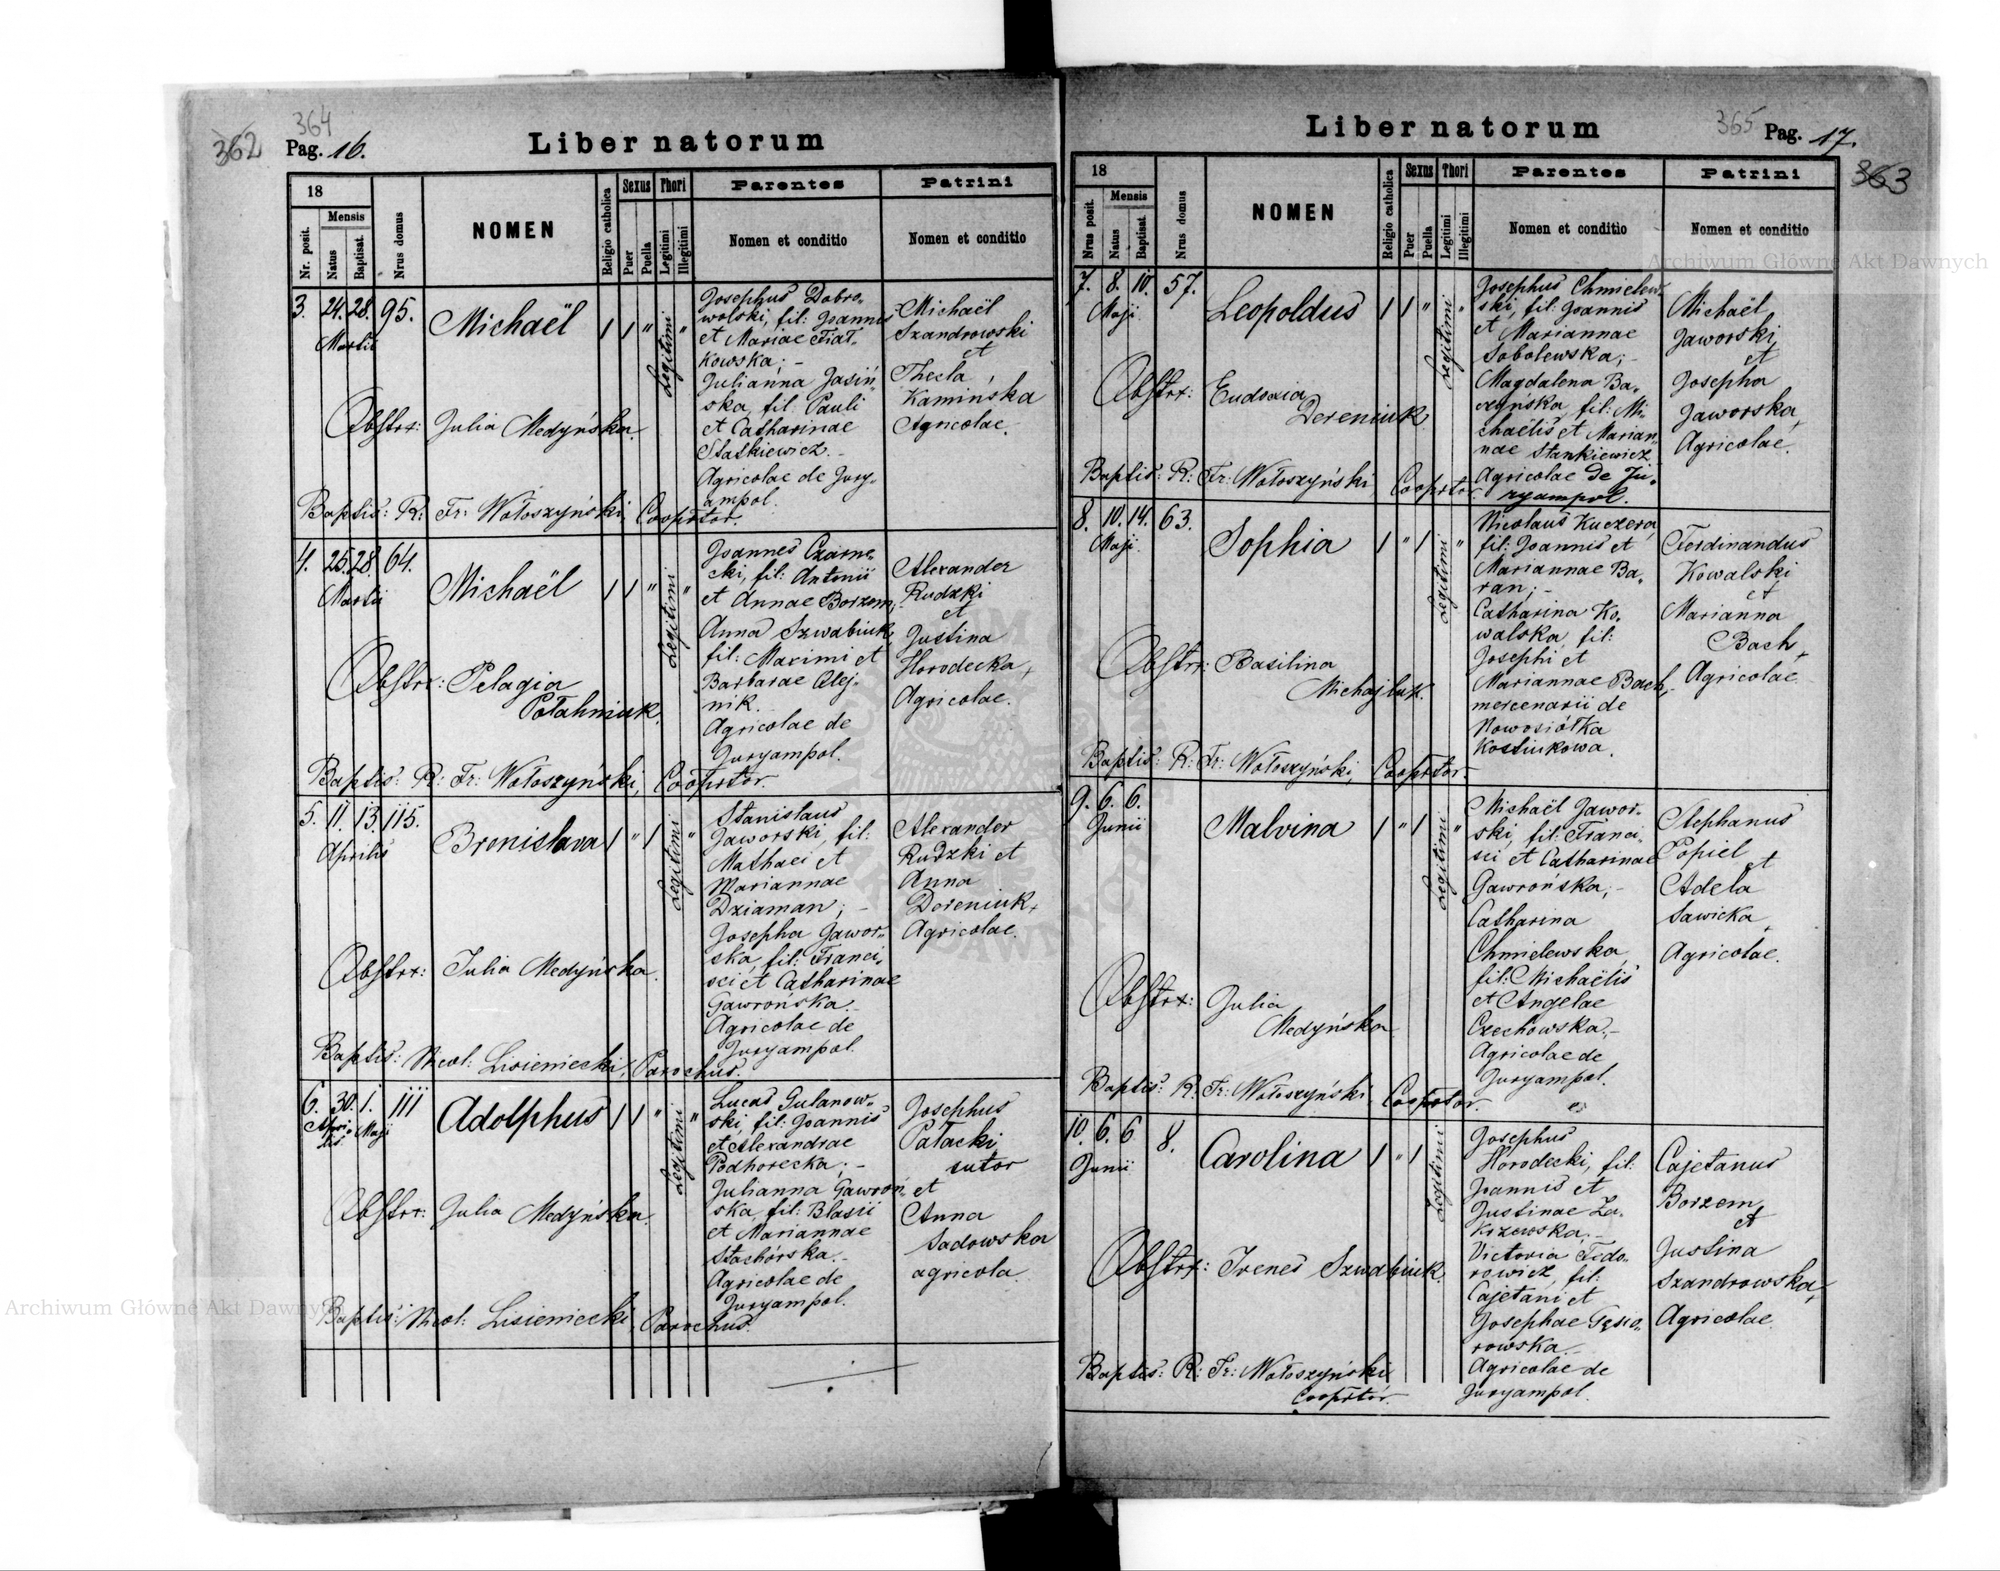 364
362
Pag. 16.
Liber natorum
18
Nr. posit.
Mensis
Natus
Baptisat.
Nrus domus
NOMEN
Religio catholica
Sexus
Puer
Puella
Thori
Legitimi
Illegitimi
Parentes
Nomen et conditio
Patrini
Nomen et conditio
3. 24. 28. 95.
Martii
Michaël
1 1 " Legitimi "
Josephus Dobro-
wolski, fil: Joannis
et Mariae Fiat-
kowska; -
Julianna Jasiń-
ska, fil: Pauli
et Catharinae
Staśkiewicz. -
Agricolae de Jury-
ampol.
Michaël
Szandrowski
et
Thecla
Kamińska
Agricolae.
Obstrx: Julia Medyńska.
Baptis: R: Fr: Wołoszyński, Cooprtor.
4. 25. 28. 64.
Martii
Michaël
1 1 " Legitimi "
Joannes Czarne-
cki, fil: Antonii
et Annae Borzem;
Anna Szwabiuk
fil: Maximi et
Barbarae Olej-
nik.
Agricolae de
Juryampol.
Alexander
Rudzki
et
Justina
Horodecka,
Agricolae.
Obstrx: Pelagia
Połahniuk.
Baptis: R: Fr: Wołoszyński, Cooprtor.
5. 11. 13. 115.
Aprilis
Bronislava
1 " 1 Legitimi "
Stanislaus
Jaworski, fil:
Mathaei et
Mariannae
Dziaman; -
Josepha Jawor-
ska, fil: Franci-
sci et Catharinae
Gawrońska. -
Agricolae de
Juryampol.
Alexander
Rudzki et
Anna
Dereniuk,
Agricolae.
Obstrx: Julia Medyńska.
Baptis: Nicol: Lisieniecki, Parochus.
6. 30. 1. 111
Apri-
lis Maji
Adolphus
1 1 " Legitimi "
Lucas Gulanow-
ski, fil: Joannis
et Alexandrae
Podhorecka; -
Julianna Gawroń-
ska, fil: Blasii
et Mariannae
Stachórska. -
Agricolae de
Juryampol.
Josephus
Pałacki
sutor
et
Anna
Sadowska
agricola.
Obstrx: Julia Medyńska.
Baptis: Nicol: Lisieniecki, Parochus.
Liber natorum
365
Pag. 17.
363
18
Nrus posit.
Mensis
Natus
Baptisat.
Nrus domus
NOMEN
Religio catholica
Sexus
Puer
Puella
Thori
Legitimi
Illegitimi
Parentes
Nomen et conditio
Patrini
Nomen et conditio
7. 8. 10. 57.
Maji
Leopoldus
1 1 " Legitimi "
Josephus Chmielew-
ski, fil: Joannis
et Mariannae
Sobolewska; -
Magdalena Ba-
czyńska, fil: Mi-
chaëlis et Marian-
nae Stankiewicz
Agricolae de Ju-
ryampol.
Michaël
Jaworski
et
Josepha
Jaworska,
Agricolae.
Obstrx: Eudoxia
Dereniuk.
Baptis: R: Fr: Wołoszyński, Cooprtor.
8. 10. 14. 63.
Maji
Sophia
1 " 1 Legitimi "
Nicolaus Kuczera,
fil: Joannis et
Mariannae Ba-
ran; -
Catharina Ko-
walska fil:
Josephi et
Mariannae Bach,
mercenarii de
Nowosiółka
Kostiukowa.
Ferdinandus
Kowalski
et
Marianna
Bach,
Agricolae
Obstrx: Basilina
Michajluk.
Baptis: R: Fr: Wołoszyński, Cooprtor.
9. 6. 6.
Junii
Malvina
1 " 1 Legitimi "
Michaël Jawor-
ski, fil: Franci-
sci et Catharinae
Gawrońska; -
Catharina
Chmielewska,
fil: Michaëlis
et Angelae
Czechowska. -
Agricolae de
Juryampol.
Stephanus
Popiel
et
Adela
Sawicka,
Agricolae.
Obstrx: Julia
Medyńska
Baptis: R: Fr: Wołoszyński, Cooprtor.
10. 6. 6 8.
Junii
Carolina
1 " 1 Legitimi
Josephus
Horodecki, fil:
Joannis et
Justinae Za-
krzewska. -
Victoria Fedo-
rowicz, fil:
Cajetani et
Josephae Gąsio-
rowska. -
Agricolae de
Juryampol.
Cajetanus
Borzem,
et
Justina
Szandrowska,
Agricolae
Obstrx: Irenes Szwabiuk.
Baptis: R: Fr: Wołoszyński
Cooprtor.
Archiwum Główne Akt Dawnych
Archiwum Główne Akt Dawnych